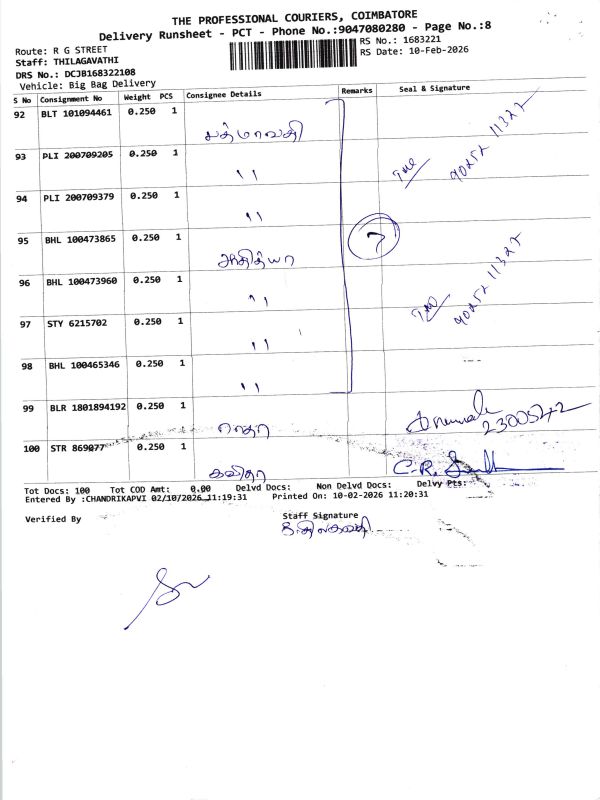 THE PROFESSIONAL COURIERS, COIMBATORE
Delivery Runsheet - PCT - Phone No.:9047080280 - Page No.:8
Route: R G STREET
RS No.: 1683221
Staff: THILAGAVATHI
RS Date: 10-Feb-2026
DRS No.: DCJB168322108
Vehicle: Big Bag Delivery
S No Consignment No Weight PCS Consignee Details Remarks Seal & Signature
92 BLT 101094461 0.250 1 பத்மாவதி
93 PLI 200709205 0.250 1 "
94 PLI 200709379 0.250 1 "
95 BHL 100473865 0.250 1 ஆதித்யா 7
96 BHL 100473960 0.250 1 "
97 STY 6215702 0.250 1 "
98 BHL 100465346 0.250 1 "
99 BLR 1801894192 0.250 1 ராதா
100 STR 869077 0.250 1 கவிதா C.R.
Tot Docs: 100 Tot COD Amt: 0.00 Delvd Docs: Non Delvd Docs: Delvy Pts:
Entered By :CHANDRIKAPVI 02/10/2026 11:19:31 Printed On: 10-02-2026 11:20:31
Verified By
Staff Signature